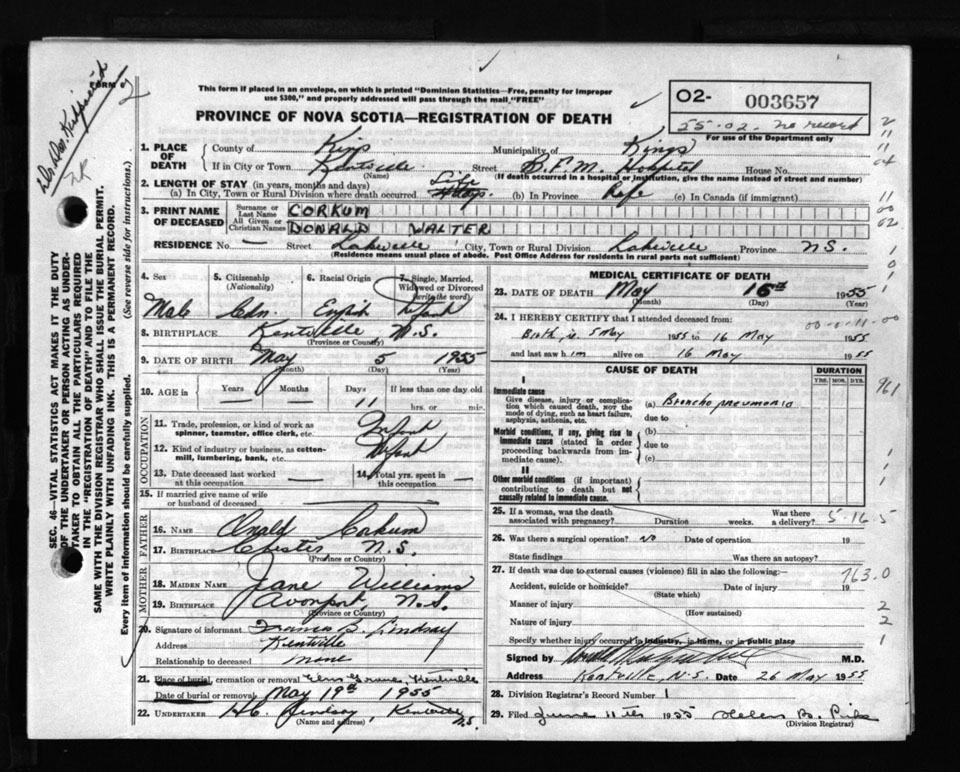 FORM
Dr. D.W. Kirkpatrick
This form if placed in an envelope, on which is printed "Dominion Statistics—Free, penalty for improper
use $300," and properly addressed will pass through the mail "FREE"
PROVINCE OF NOVA SCOTIA—REGISTRATION OF DEATH
O2- 003657
55-02 no record
For use of the Department only
1. PLACE OF DEATH
County of Kings Municipality of Kings
If in City or Town Kentville (Name) Street B.F.M. Hospital House No.
(If death occurred in a hospital or institution, give the name instead of street and number)
2. LENGTH OF STAY (in years, months and days)
(a) In City, Town or Rural Division where death occurred Life (b) In Province Life (c) In Canada (if immigrant)
3. PRINT NAME OF DECEASED
Surname or Last Name CORKUM
All Given or Christian Names DONALD WALTER
RESIDENCE No. — Street Lakeville City, Town or Rural Division Lakeville Province N.S.
(Residence means usual place of abode. Post Office Address for residents in rural parts not sufficient)
SEC. 46—VITAL STATISTICS ACT MAKES IT THE DUTY
OF THE UNDERTAKER OR PERSON ACTING AS UNDER-
TAKER TO OBTAIN ALL THE PARTICULARS REQUIRED
IN THE "REGISTRATION OF DEATH" AND TO FILE THE
SAME WITH THE DIVISION REGISTRAR WHO SHALL ISSUE THE BURIAL PERMIT.
WRITE PLAINLY WITH UNFADING INK. THIS IS A PERMANENT RECORD.
Every item of information should be carefully supplied. (See reverse side for instructions.)
4. Sex 5. Citizenship (Nationality) 6. Racial Origin 7. Single, Married, Widowed or Divorced (write the word)
Male Cdn. English Infant
8. BIRTHPLACE Kentville N.S.
(Province or Country)
9. DATE OF BIRTH May 5 1955
(Month) (Day) (Year)
10. AGE in Years — Months — Days 11 If less than one day old hrs. or min.
OCCUPATION
11. Trade, profession, or kind of work as spinner, teamster, office clerk, etc. Infant
12. Kind of industry or business, as cotton-mill, lumbering, bank, etc. Infant
13. Date deceased last worked at this occupation — 14. Total yrs. spent in this occupation —
15. If married give name of wife or husband of deceased
FATHER
16. NAME Corkum
17. BIRTHPLACE Chester N.S.
(Province or Country)
MOTHER
18. MAIDEN NAME Jane Williams
19. BIRTHPLACE Avonport N.S.
(Province or Country)
20. Signature of informant Francis B. Lindsay
Address Kentville
Relationship to deceased none
21. Place of burial, cremation or removal Elm Grove Kentville
Date of burial or removal May 19th 1955
22. UNDERTAKER H.C. Lindsay Kentville N.S.
(Name and address)
MEDICAL CERTIFICATE OF DEATH
23. DATE OF DEATH May 16th 1955
(Month) (Day) (Year)
24. I HEREBY CERTIFY that I attended deceased from: 00-0-11-00
Birth 5 May 1955 to 16 May 1955
and last saw him alive on 16 May 1955
CAUSE OF DEATH DURATION
YRS. MOS. DYS.
I
Immediate cause
Give disease, injury or complication which caused death, not the mode of dying, such as heart failure, asphyxia, asthenia, etc.
(a) Broncho pneumonia
due to
Morbid conditions, if any, giving rise to immediate cause (stated in order proceeding backwards from immediate cause).
(b)
due to
(c)
II
Other morbid conditions (if important) contributing to death but not causally related to immediate cause.
25. If a woman, was the death associated with pregnancy? Duration weeks. Was there a delivery? 5-16-5
26. Was there a surgical operation? No Date of operation 19
State findings Was there an autopsy?
27. If death was due to external causes (violence) fill in also the following:— 763.0
Accident, suicide or homicide? Date of injury 19
(State which)
Manner of injury
(How sustained)
Nature of injury
Specify whether injury occurred in industry, in home, or in public place
Signed by M.D.
Address Kentville, N.S. Date 26 May 1955
28. Division Registrar's Record Number 1
29. Filed June 11th 1955 Helen B.
(Division Registrar)